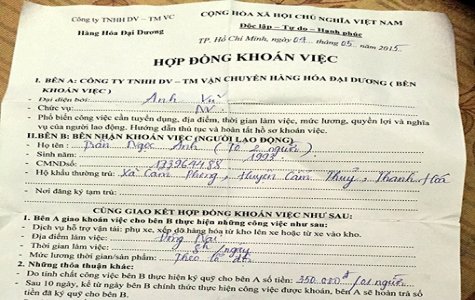 Công ty TNHH DV – TM VC
Hàng Hóa Đại Dương
CỘNG HÒA XÃ HỘI CHỦ NGHĨA VIỆT NAM
Độc lập – Tự do – Hạnh phúc
TP. Hồ Chí Minh, ngày 04 tháng 05 năm 2015
HỢP ĐỒNG KHOÁN VIỆC
I. BÊN A: CÔNG TY TNHH DV – TM VẬN CHUYỂN HÀNG HÓA ĐẠI DƯƠNG ( BÊN
KHOÁN VIỆC )
- Đại diện bởi: Anh Vũ
- Chức vụ: NV
- Phổ biến công việc cần tuyển dụng, địa điểm, thời gian làm việc, mức lương, quyền lợi và nghĩa
vụ của người lao động. Hướng dẫn thủ tục và hoàn tất hồ sơ khoán việc.
II.BÊN B: BÊN NHẬN KHOÁN VIỆC (NGƯỜI LAO ĐỘNG)
- Họ tên : Trần Ngọc Anh (Tổ 2 người)
- Sinh năm: 1993
- CMNDsố: 173964488
- Hộ khẩu thường trú: Xã Cẩm Phong, Huyện Cẩm Thuỷ, Thanh Hoá
- Nơi đăng ký tạm trú:
CÙNG GIAO KẾT HỢP ĐỒNG KHOÁN VIỆC NHƯ SAU:
1. Bên A giao khoán việc cho bên B thực hiện những công việc như sau:
- Dịch vụ hỗ trợ vận tải: phụ xe, xếp dỡ hàng hóa từ kho lên xe hoặc từ xe vào kho.
- Địa điểm làm việc: Đồng Nai
- Thời gian làm việc: 8h/ngày
- Mức lương thời gian/sản phẩm: Theo
2. Những thỏa thuận khác:
- Do tính chất công việc bên B thực hiện ký quỹ cho bên A số tiền: 350.000đ/01 người
- Sau 10 ngày, kể từ ngày bên B chính thức thực hiện công việc được khoán, bên A sẽ hoàn trả số
tiền đã ký quỹ cho bên B.